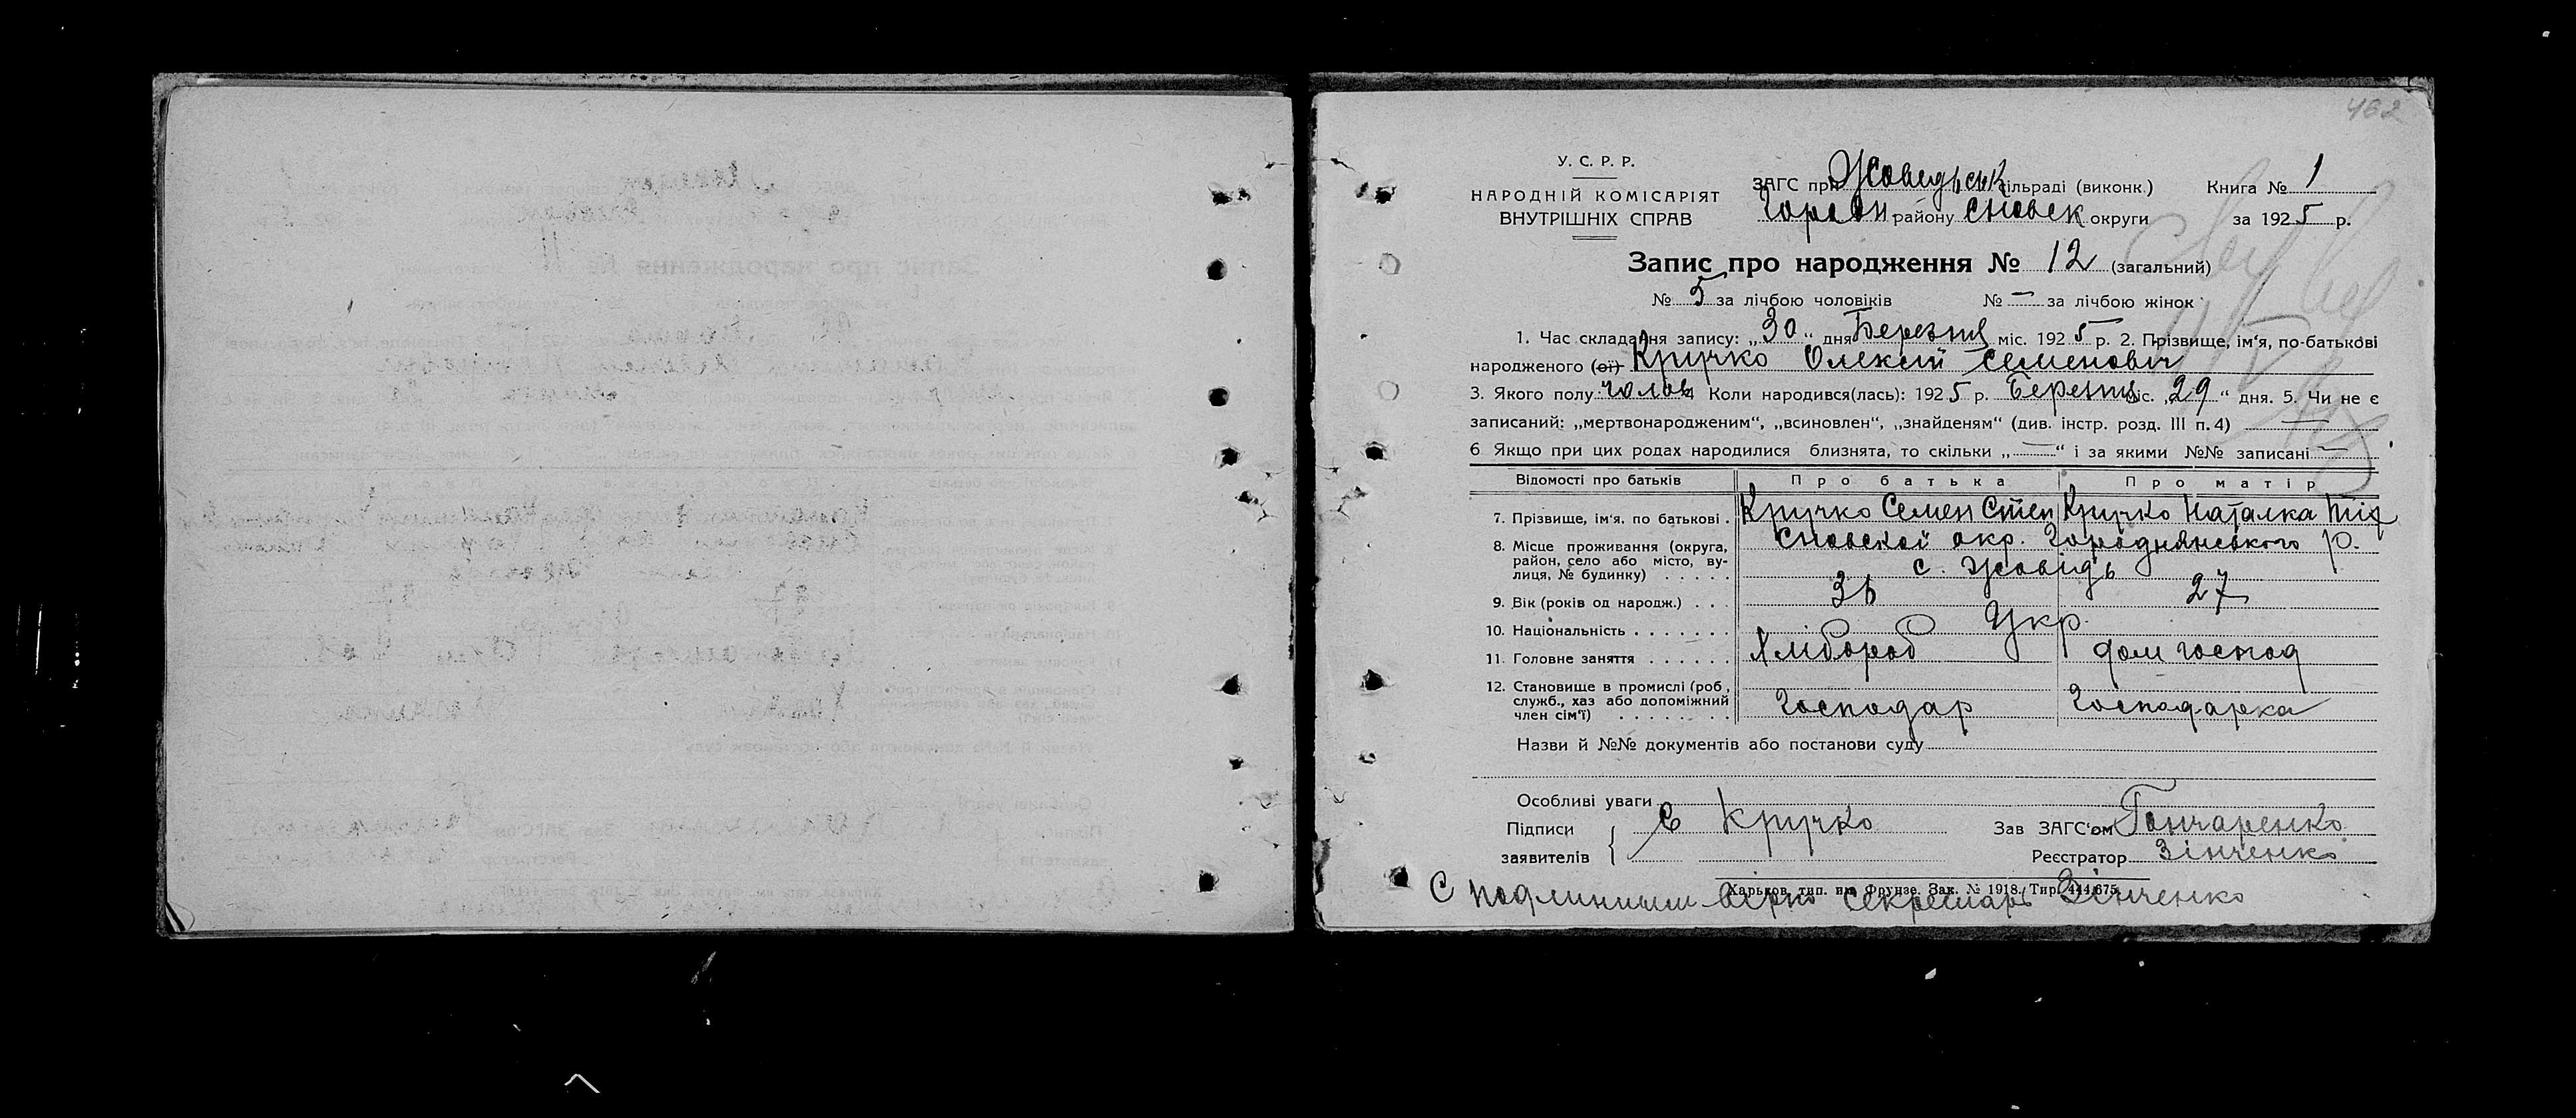 462
У. С. Р. Р.
НАРОДНІЙ КОМІСАРІЯТ
ВНУТРІШНІХ СПРАВ
ЗАГС при Жоведьськ сільраді (виконк.) Книга № 1
Город н району Сновськ округи за 1925 р.
Запис про народження № 12 (загальний)
№ 5 за лічбою чоловіків № — за лічбою жінок
1. Час складання запису: „30“ дня Березня міс. 1925 р. 2. Прізвище, ім‘я, по-батькові
народженого (ої) Кручко Олексій Семенович
3. Якого полу чолов 4 Коли народився(лась): 1925 р. Березня міс. „29“ дня. 5. Чи не є
записаний: „мертвонародженим“, „всиновлен“, „знайденям“ (див. інстр. розд. III п. 4) —
6 Якщо при цих родах народилися близнята, то скільки „—“ і за якими №№ записані —
Відомості про батьків Про батька Про матір
7. Прізвище, ім‘я, по батькові . Кручко Семен Степ Кручко Наталка Тих
8. Місце проживання (округа, район, село або місто, вулиця, № будинку) . . . . . Сновської окр. Городнянського р.
с. Жовідь
9. Вік (років од народж.) . . . 36 27
10. Національність . . . . . . . Укр.
11. Головне заняття . . . . . . Хлібороб дом господ
12. Становище в промислі (роб, служб., хаз або допоміжний член сім‘ї) . . . . . . . . Господар Господарка
Назви й №№ документів або постанови суду
Особливі уваги
Підписи С Кручко Зав ЗАГС‘ом Гончаренко
заявителів Реєстратор Зінченко
Харьков, тип. им. Фрунзе. Зак. № 1918. Тир. 444.675.
С подлинним вірно секретарь Зінченко